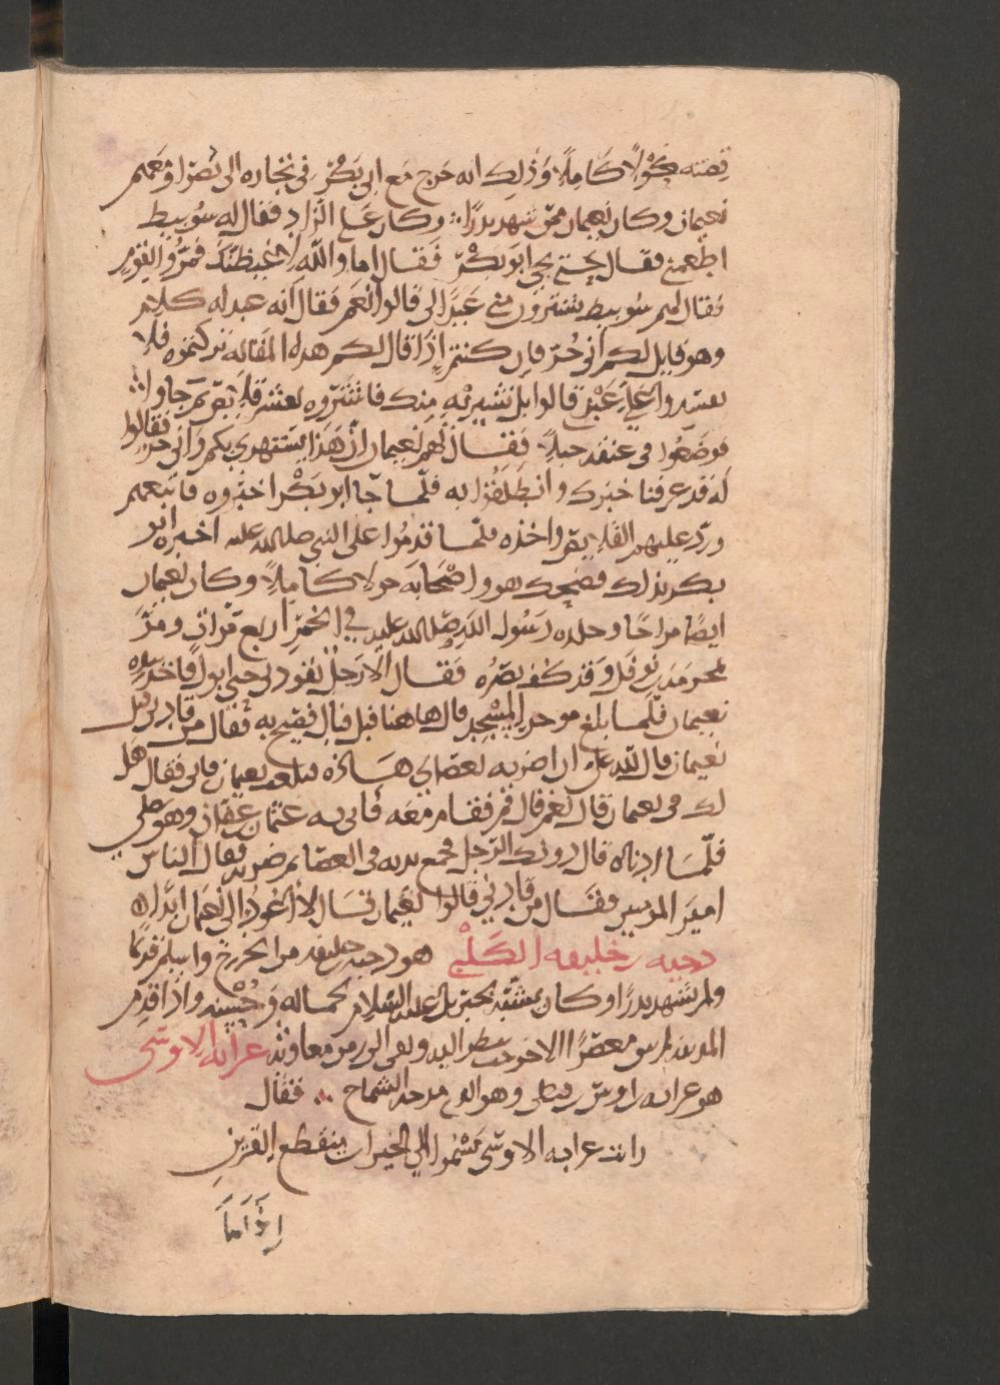 قصته حولا كاملا وذلك انه خرج مع ابي بكر في تجاره الى بصرا ومعهم
نعيمان وكان نعيمان ممن شهد بدرا ؛ وكان على الزاد فقال له سويبط
اطعمني فقال حتى يجي ابو بكر فقال اما والله لاغيظنك فمروا بقوم
فقال لهم سويبط تشترون مني عبدا لي قالوا نعم فقال انه عبد له كلام
وهو قايل لكم اني حر فان كنتم اذا قال لكم هذه المقاله تركتموه فلا
تفسدوا علي عبدي قالوا بل نشتريه منك فاشتروه بعشر قلايص ثم جاوا
فوضعوا في عنقه حبلا فقال لهم نعيمان ان هذا يستهزي بكم واني حر فقالوا
له قد عرفنا خبرك وانطلقوا به فلما جا ابو بكر اخبروه فاتبعهم
ورد عليهم القلايص واخذه فلما قدموا على النبي صلى الله عليه اخبره ابو
بكر بذلك فضحك هو واصحابه حولا كاملا وكان نعيمان
ايضا مزاحا وجلده رسول الله صلى الله عليه في الخمر اربع مرات ومر
بمخرمه بن نوفل وقد كف بصره فقال الا رجل يقودني حتى ابول فاخذ بيده
نعيمان فلما بلغ موخر المسجد قال هاهنا فبل فبال فصيح به فقال من قادني قيل
نعيمان قال لله علي ان اضربه بعصاي هذه فبلغ نعيمان فاتى فقال هل
لك في نعيمان قال نعم قال قم فقام معه فاتى به عثمان بن عفان وهو يصلي
فلما قال دونك الرجل فجمع يديه في العصا ثم ضربه فقال الناس
امير المومنين فقال من قادني قالوا نعيمان قال لا اعود الى نعيمان ابدا
دحيه بن خليفه الكلبي هو دحيه بن خليفه من الخزرج واسلم قديما
ولم يشهد بدرا وكان يشبه بجبريل عليه السلام لجماله وحسنه واذا قدم
المدينه لم تبق معصرا الا خرجت تنظر اليه وبقي الى زمن معاويه عرابه الاوسي
هو عرابه بن اوس بن قيظي وهو الذي مدحه الشماخ ؛ فقال
رايت عرابه الاوسي يسموا الى الخيرات منقطع القرين
اذا ما